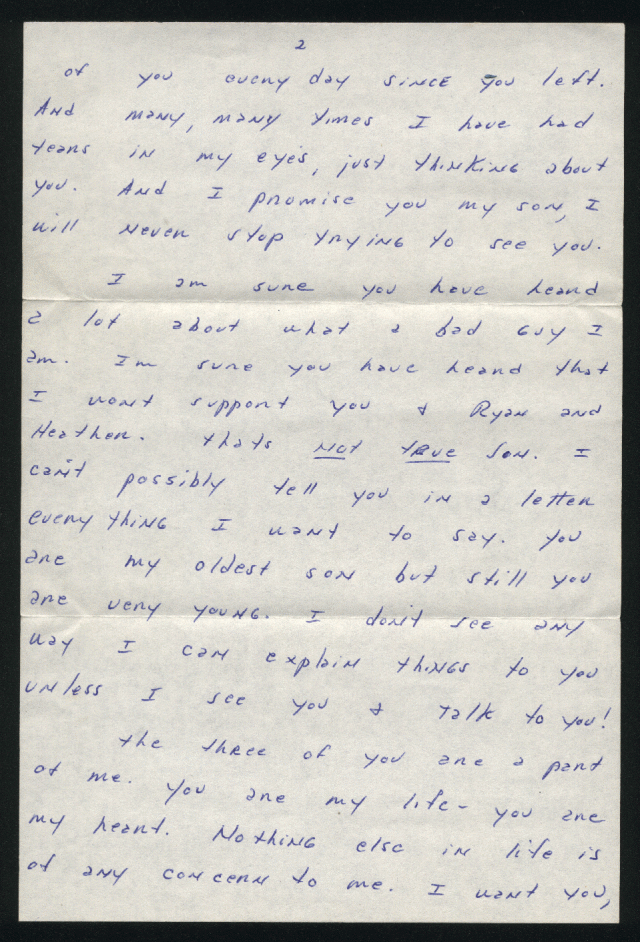 2
of you every day since you left.
And many, many times I have had
tears in my eyes, just thinking about
you. And I promise you my son, I
will never stop trying to see you.
I am sure you have heard
a lot about what a bad guy I
am. Im sure you have heard that
I wont support you & Ryan and
Heather. thats not true son. I
can't possibly tell you in a letter
everything I want to say. you
are my oldest son but still you
are very young. I don't see any
way I can explain things to you
unless I see you & talk to you!
the three of you are a part
of me. you are my life - you are
my heart. Nothing else in life is
of any concern to me. I want you,